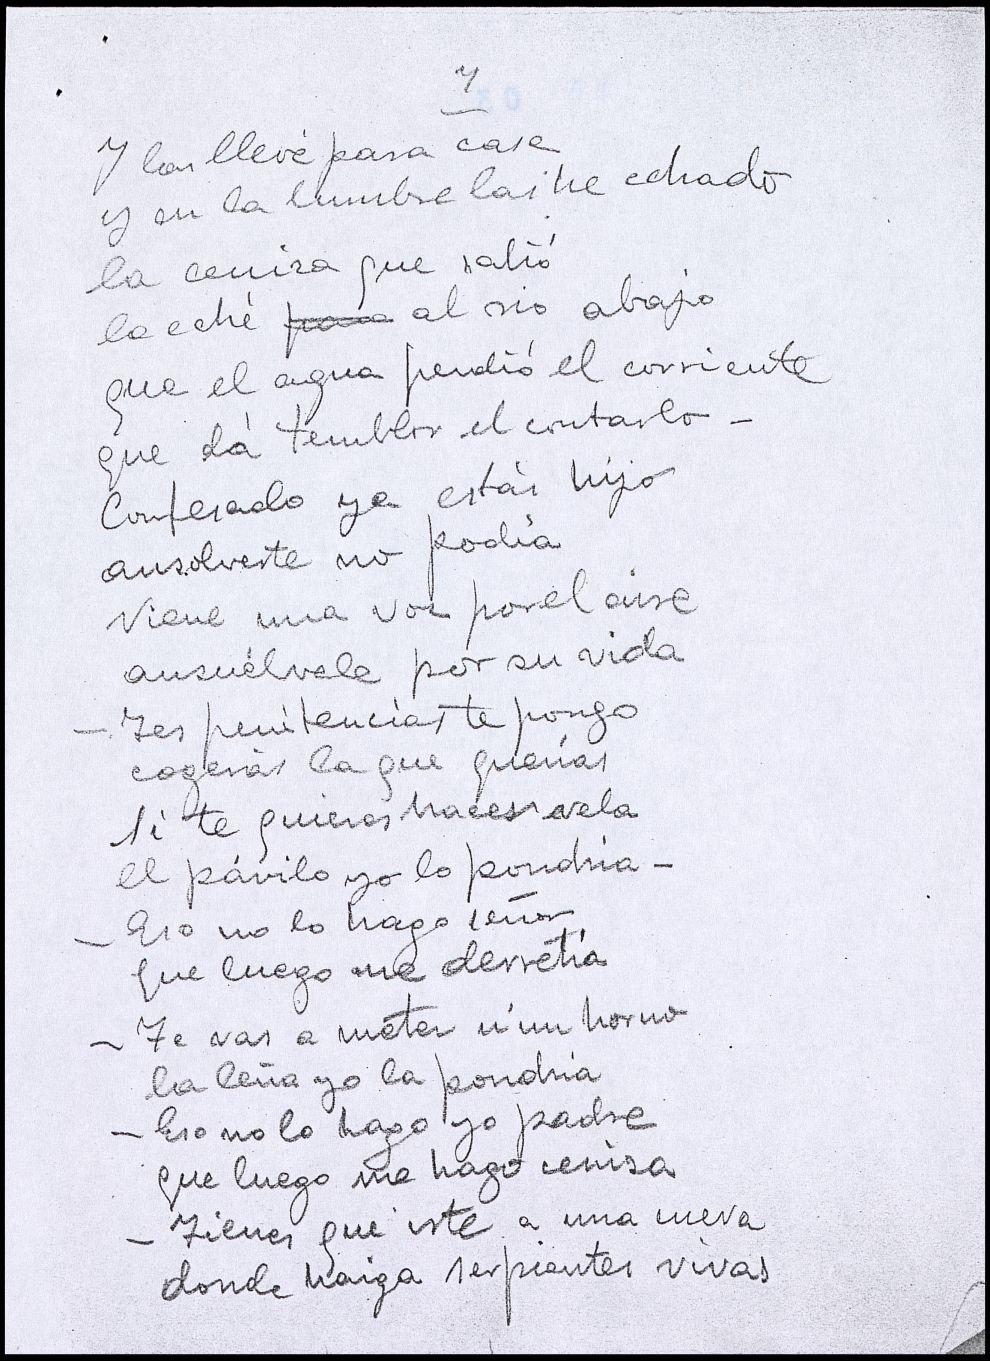 7
Y las llevé para casa
y en la lumbre las he echado
la ceniza que salió
la eché para al rio abajo
que el agua perdió el corriente
que dá temblor el contarlo -
Confesado ya estás hijo
ansolverte no podía
Viene una voz por el aire
ansuélvele por su vida
- Tes penitencias te pongo
cogerás la que querías
Si te quieres hacer vela
el pávilo yo lo pondría -
- Eso no lo hago señor
que luego me derretía
- Te vas a meter n'un horno
la leña yo la pondría
- Eso no lo hago yo padre
que luego me hago ceniza
- Tienes que irte a una cueva
donde haiga serpientes vivas